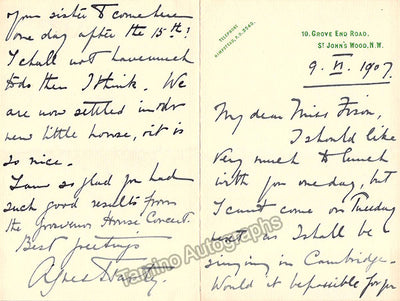 TELEPHONE
10, GROVE END ROAD,
ST JOHN'S WOOD, N.W.
9. VI. 1907.
My dear Miss
I should like
very much to lunch
with you one day, but
I can't come on Tuesday
next as I shall be
singing in Cambridge.
Would it be possible for
your sister to come here
one day after the 15th?
I shall not have much
to do then I think. We
are now settled in our
new little house, & it is
so nice.
I am so glad you had
such good results from
the Grosvenor House Concert.
Best greetings
Agnes
Tamino Autographs